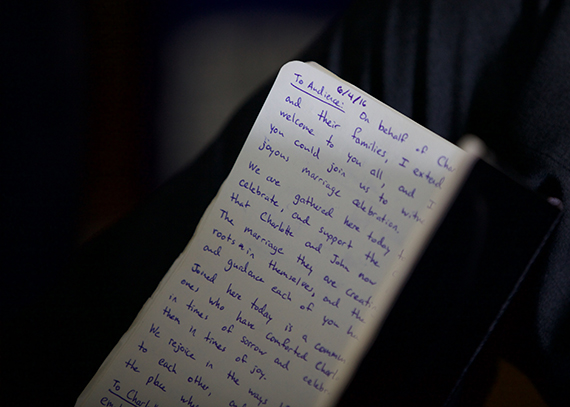 To Audience: 6/4/16 On behalf of Ch
and their families, I extend
welcome to you all, and I
you could join us to witn
joyous marriage celebration.
We are gathered here today
celebrate, and support the
that Charlotte and John now
The marriage they are creati
roots in themselves, and the
and guidance each of you h
Joined here today is a commu
ones who have comforted Charl
in times of sorrow and celeb
them in times of joy.
We rejoice in the ways
to each other, and
the place whe
To Charl